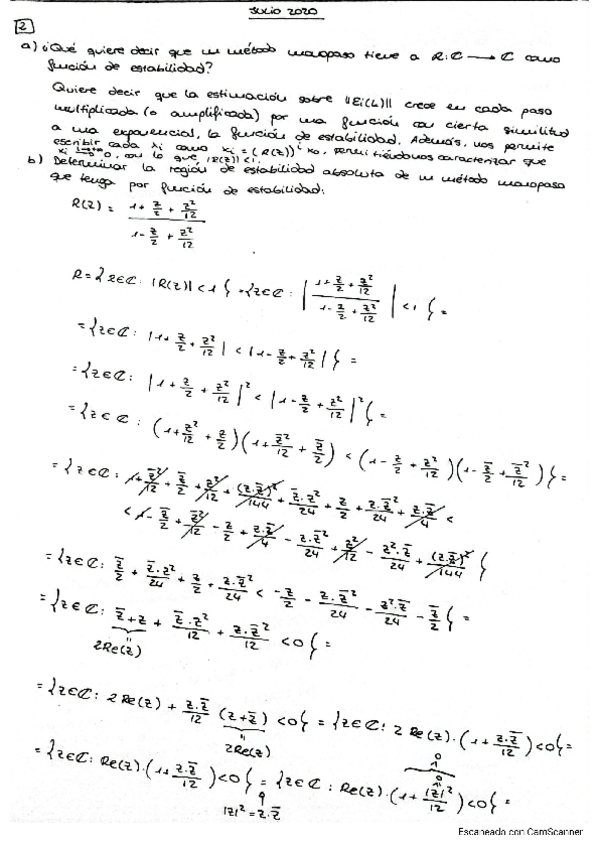 JULIO 2020
2
a) ¿Qué quiere decir que un método monopaso tiene a R: ℂ → ℂ como
función de estabilidad?
Quiere decir que la estimación sobre ||Ei(h)|| crece en cada paso
multiplicada (o amplificada) por una función con cierta similitud
a una exponencial, la función de estabilidad. Además, nos permite
escribir cada xi como xi = (R(z))^i x0, permitiéndonos caracterizar que
xi → 0, con lo que |R(z)| < 1.
b) Determinar la región de estabilidad absoluta de un método monopaso
que tenga por función de estabilidad:
R(z) = (1 + z/2 + z²/12) / (1 - z/2 + z²/12)
R = {z∈ℂ: |R(z)| < 1} = {z∈ℂ: |(1 + z/2 + z²/12) / (1 - z/2 + z²/12)| < 1} =
= {z∈ℂ: |1 + z/2 + z²/12| < |1 - z/2 + z²/12|} =
= {z∈ℂ: |1 + z/2 + z²/12|² < |1 - z/2 + z²/12|²} =
= {z∈ℂ: (1 + z²/12 + z/2)(1 + z̄²/12 + z̄/2) < (1 - z/2 + z²/12)(1 - z̄/2 + z̄²/12)} =
= {z∈ℂ: 1 + z̄²/12 + z̄/2 + z²/12 + (z·z̄)²/144 + z̄·z²/24 + z/2 + z·z̄²/24 + z·z̄/4 <
< 1 - z̄/2 + z̄²/12 - z/2 + z·z̄/4 - z·z̄²/24 + z²/12 - z²·z̄/24 + (z·z̄)²/144}
= {z∈ℂ: z̄/2 + z̄·z²/24 + z/2 + z·z̄²/24 < -z/2 - z·z̄²/24 - z²·z̄/24 - z̄/2} =
= {z∈ℂ: z̄ + z + z̄·z²/12 + z·z̄²/12 < 0} =
2Re(z)
= {z∈ℂ: 2Re(z) + z·z̄/12 (z + z̄) < 0} = {z∈ℂ: 2Re(z)·(1 + z·z̄/12) < 0} =
2Re(z)
= {z∈ℂ: Re(z)·(1 + z·z̄/12) < 0} = {z∈ℂ: Re(z)·(1 + |z|²/12) < 0} =
|z|² = z·z̄
Escaneado con CamScanner